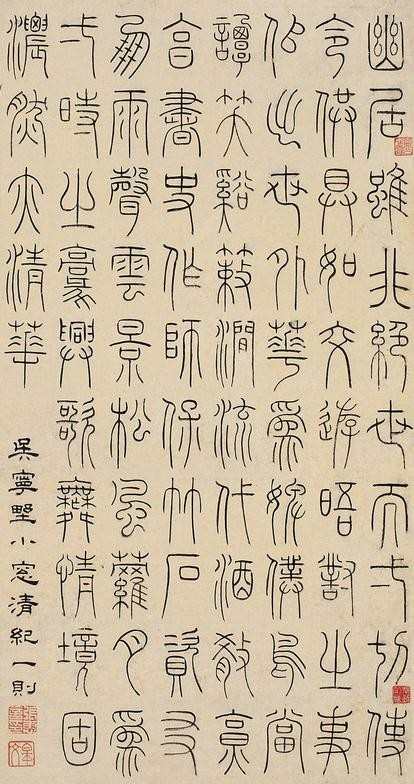 幽居雖非絕世而弌切使
令供具如交遊晤對之事
佀出世外華爲婢僕鳥當
譚笑谿蔌澗流代酒肴烹
享書史作師保竹石資友
朋雨聲雲景松風蘿月爲
弌時之豪興歌舞情境固
濃然亦清華
吳寧野小窓清紀一則